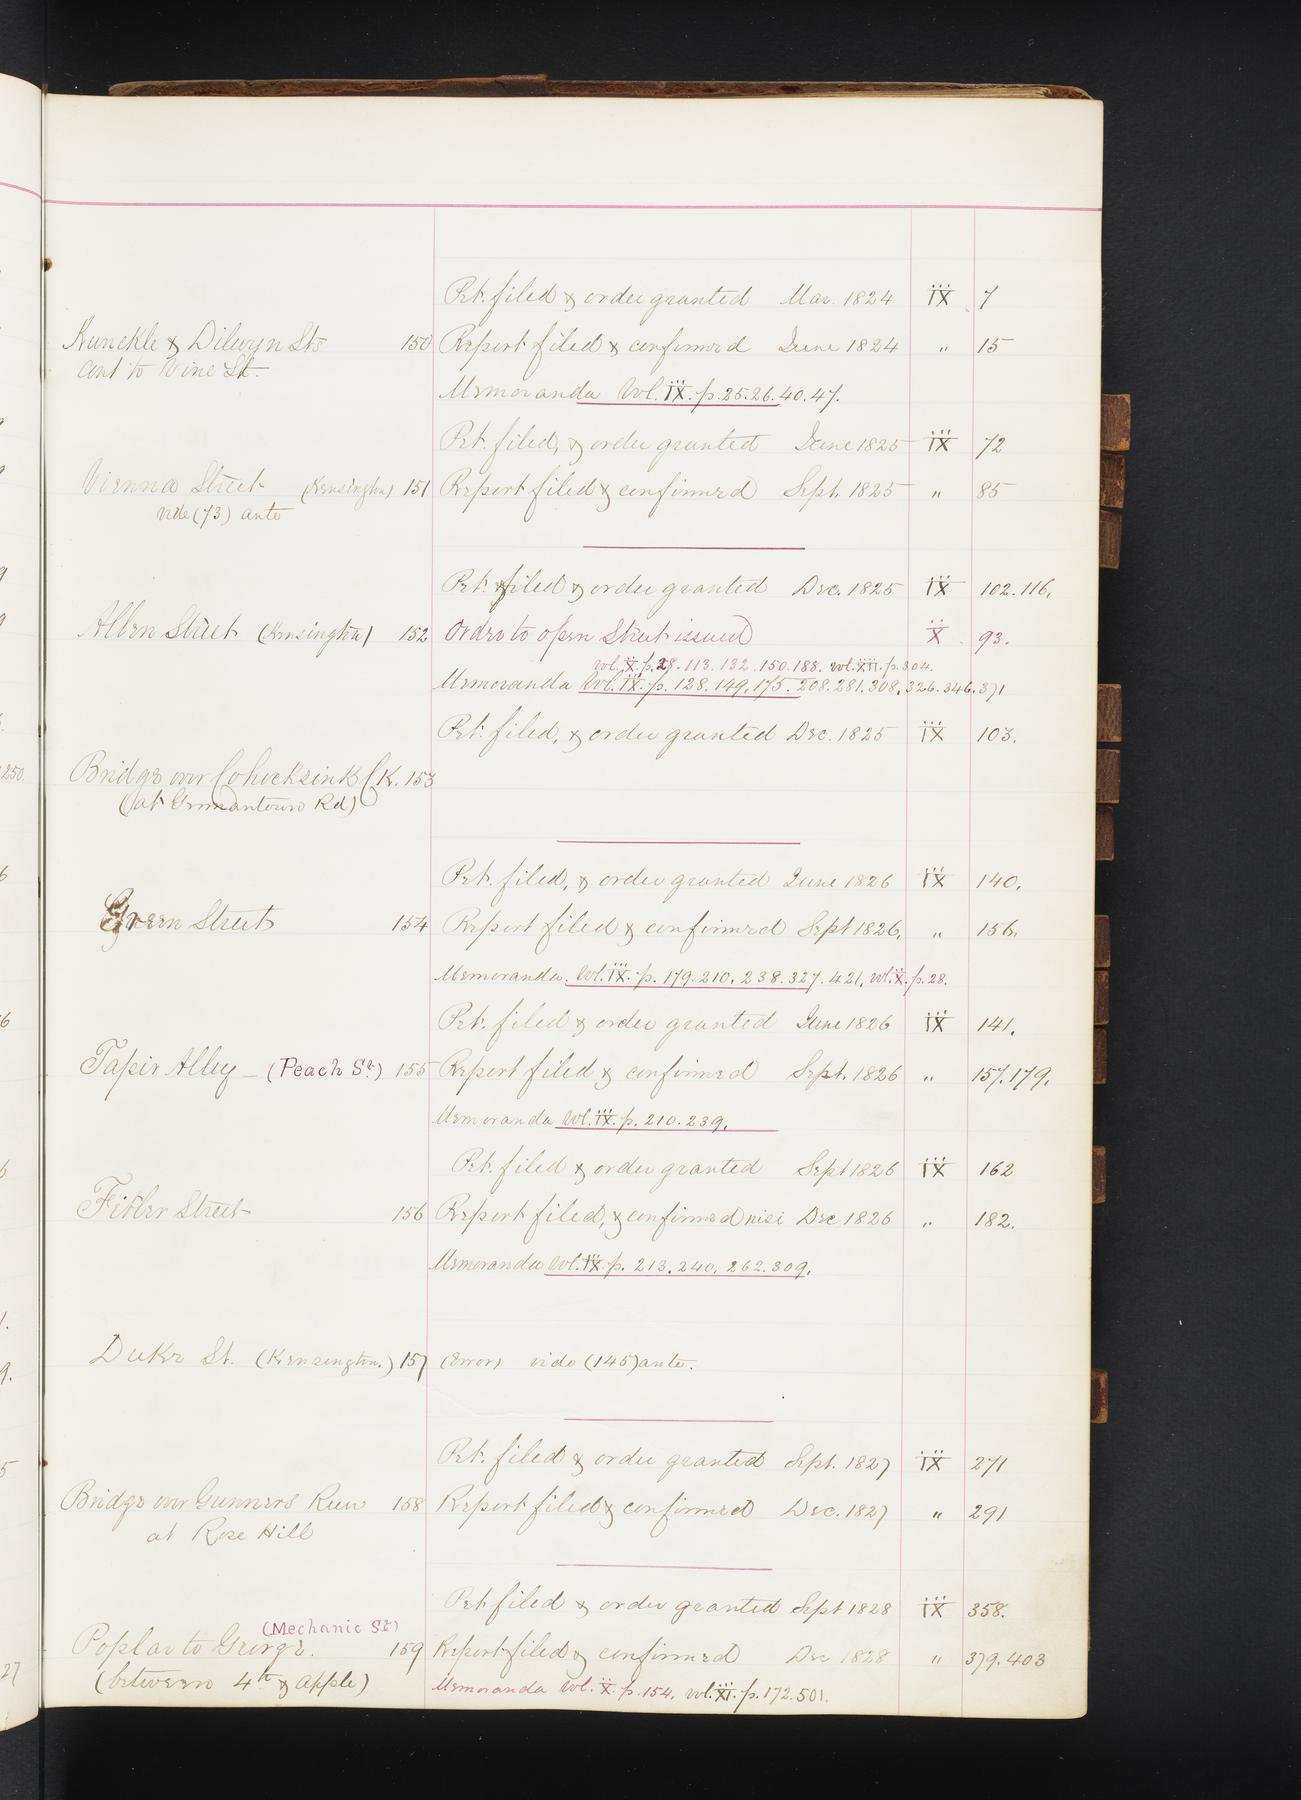 Pet. filed & order granted Mar. 1824 IX 7
Kunckle & Dilwyn Sts 150 Report filed & confirmed June 1824 " 15
cont to Vine St.
Memoranda Vol. IX. p. 25.26.40.47.
Pet. filed, & order granted June 1825 IX 72
Vienna Street (Kensington) 151 Report filed & confirmed Sept. 1825 " 85
vide (73) ante
Pet. filed & order granted Dec. 1825 IX 102.116.
Allen Street (Kensington) 152 Order to open Street issued X 93.
vol. X. p. 28. 113. 132. 150. 188. vol. XII. p. 304.
Memoranda Vol. IX. p. 128. 149. 175. 208. 281. 308. 326. 346. 371
Pet. filed, & order granted Dec. 1825 IX 103.
Bridge over Cohocksink Ck. 153
(at Germantown Rd)
Pet. filed, & order granted June 1826 IX 140.
Green Street 154 Report filed & confirmed Sept 1826. " 156.
Memoranda. Vol. IX. p. 179. 210. 238. 327. 421. vol. X. p. 28.
Pet. filed & order granted June 1826 IX 141.
Tapir Alley - (Peach St.) 155 Report filed & confirmed Sept. 1826 " 157.179.
Memoranda Vol. IX. p. 210. 239.
Pet. filed & order granted Sept 1826 IX 162
Fitler Street 156 Report filed, & confirmed nisi Dec 1826 " 182.
Memoranda Vol. IX p. 213. 240. 262. 309.
Duke St. (Kensington.) 157 (Error) vide (145) ante.
Pet. filed & order granted Sept. 1827 IX 271
Bridge over Gunners Run 158 Report filed & confirmed Dec. 1827 " 291
at Rose Hill
Pet filed & order granted Sept 1828 IX 358.
(Mechanic St.)
Poplar to George. 159 Report filed & confirmed Dec 1828 " 379.403
(between 4th & Apple)
Memoranda Vol. X. p. 154. vol. XI. p. 172. 501.